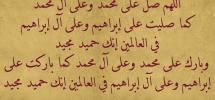 اللهم صل على محمد وعلى آل محمد
كما صليت على إبراهيم وعلى آل إبراهيم
في العالمين إنك حميد مجيد
وبارك على محمد وعلى آل محمد كما باركت على
إبراهيم وعلى آل إبراهيم في العالمين إنك حميد مجيد